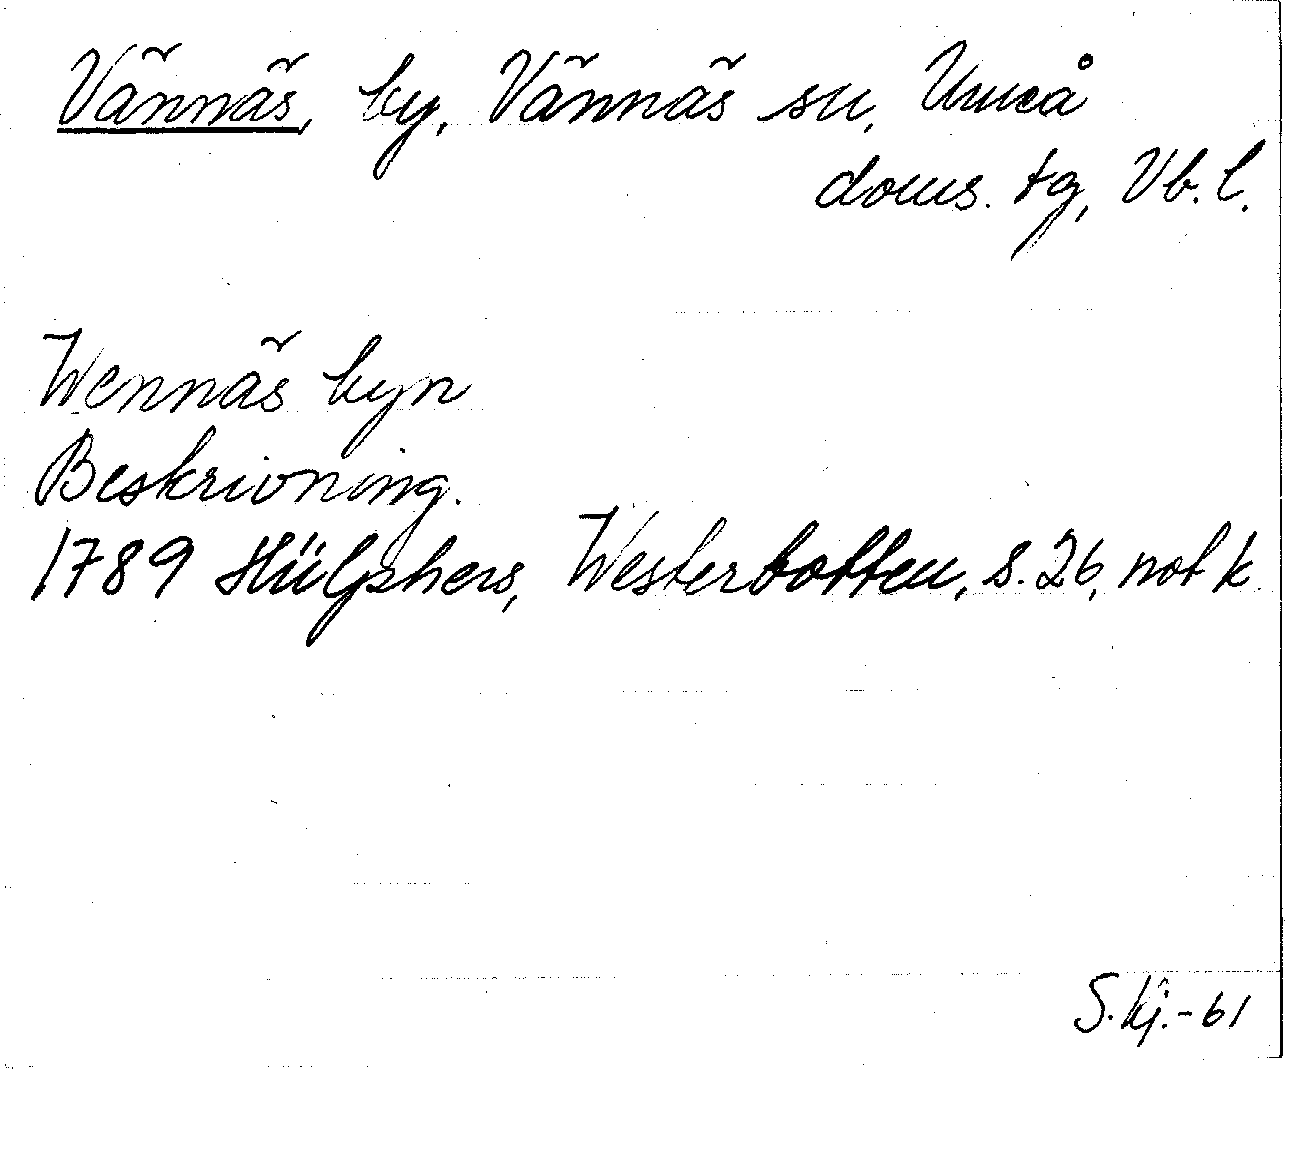 Vännäs, by, Vännäs sn, Umeå
doms. tg, Vb. l.
Wennäs byn
Beskrivning.
1789 Hülphers, Westerbotten, s. 26, not k.
S. Kj. -61